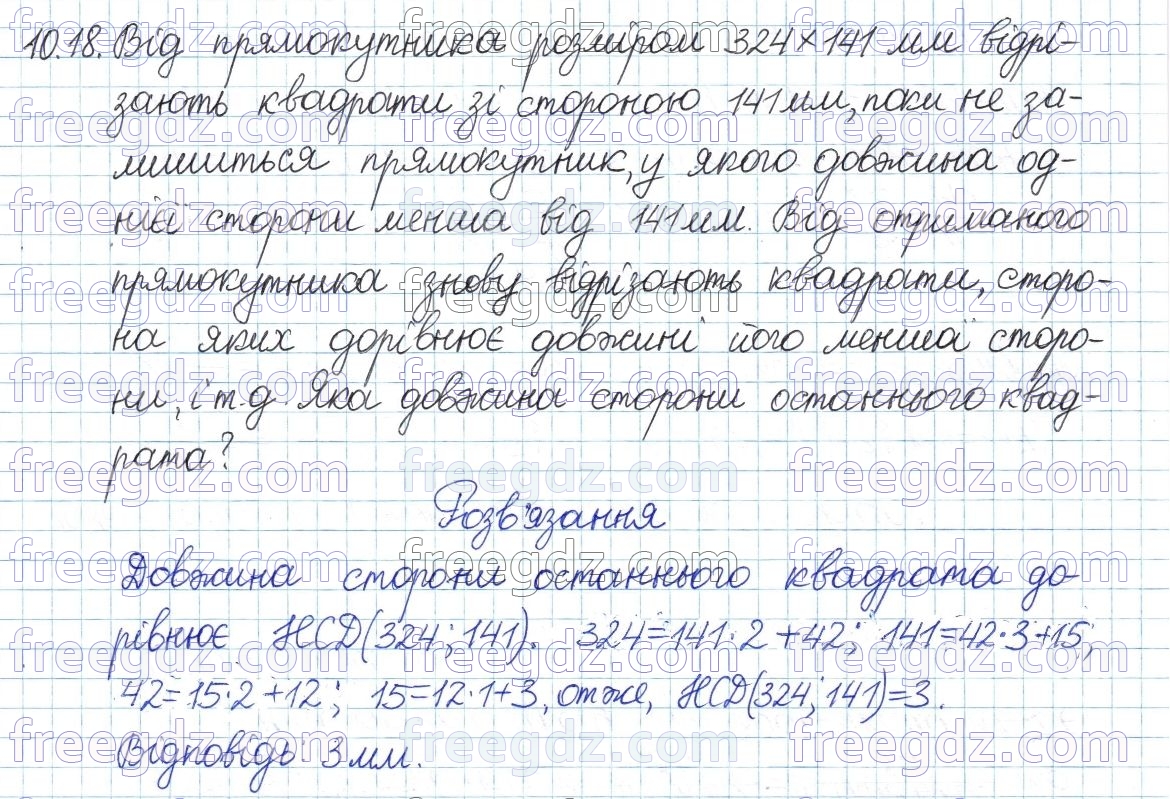 10.18. Від прямокутника розміром 324×141 мм відрі-
зають квадрати зі стороною 141 мм, поки не за-
лишиться прямокутник, у якого довжина од-
нієї сторони менша від 141 мм. Від отриманого
прямокутника знову відрізають квадрати, сторо-
на яких дорівнює довжині його меншої сторо-
ни, і т.д. Яка довжина сторони останнього квад-
рата?
Розв'язання
Довжина сторони останнього квадрата до-
рівнює НСD(324; 141). 324=141·2+42; 141=42·3+15;
42=15·2+12; 15=12·1+3, отже, НСD(324; 141)=3.
Відповідь: 3 мм.
freegdz.com